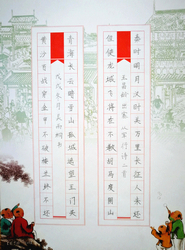 秦时明月汉时关万里长征人未还
王昌龄出塞从军行诗二首
但使龙城飞将在不教胡马度阴山
青海长云暗雪山孤城遥望玉门关
戊戌年
黄沙百战穿金甲不破楼兰终不还